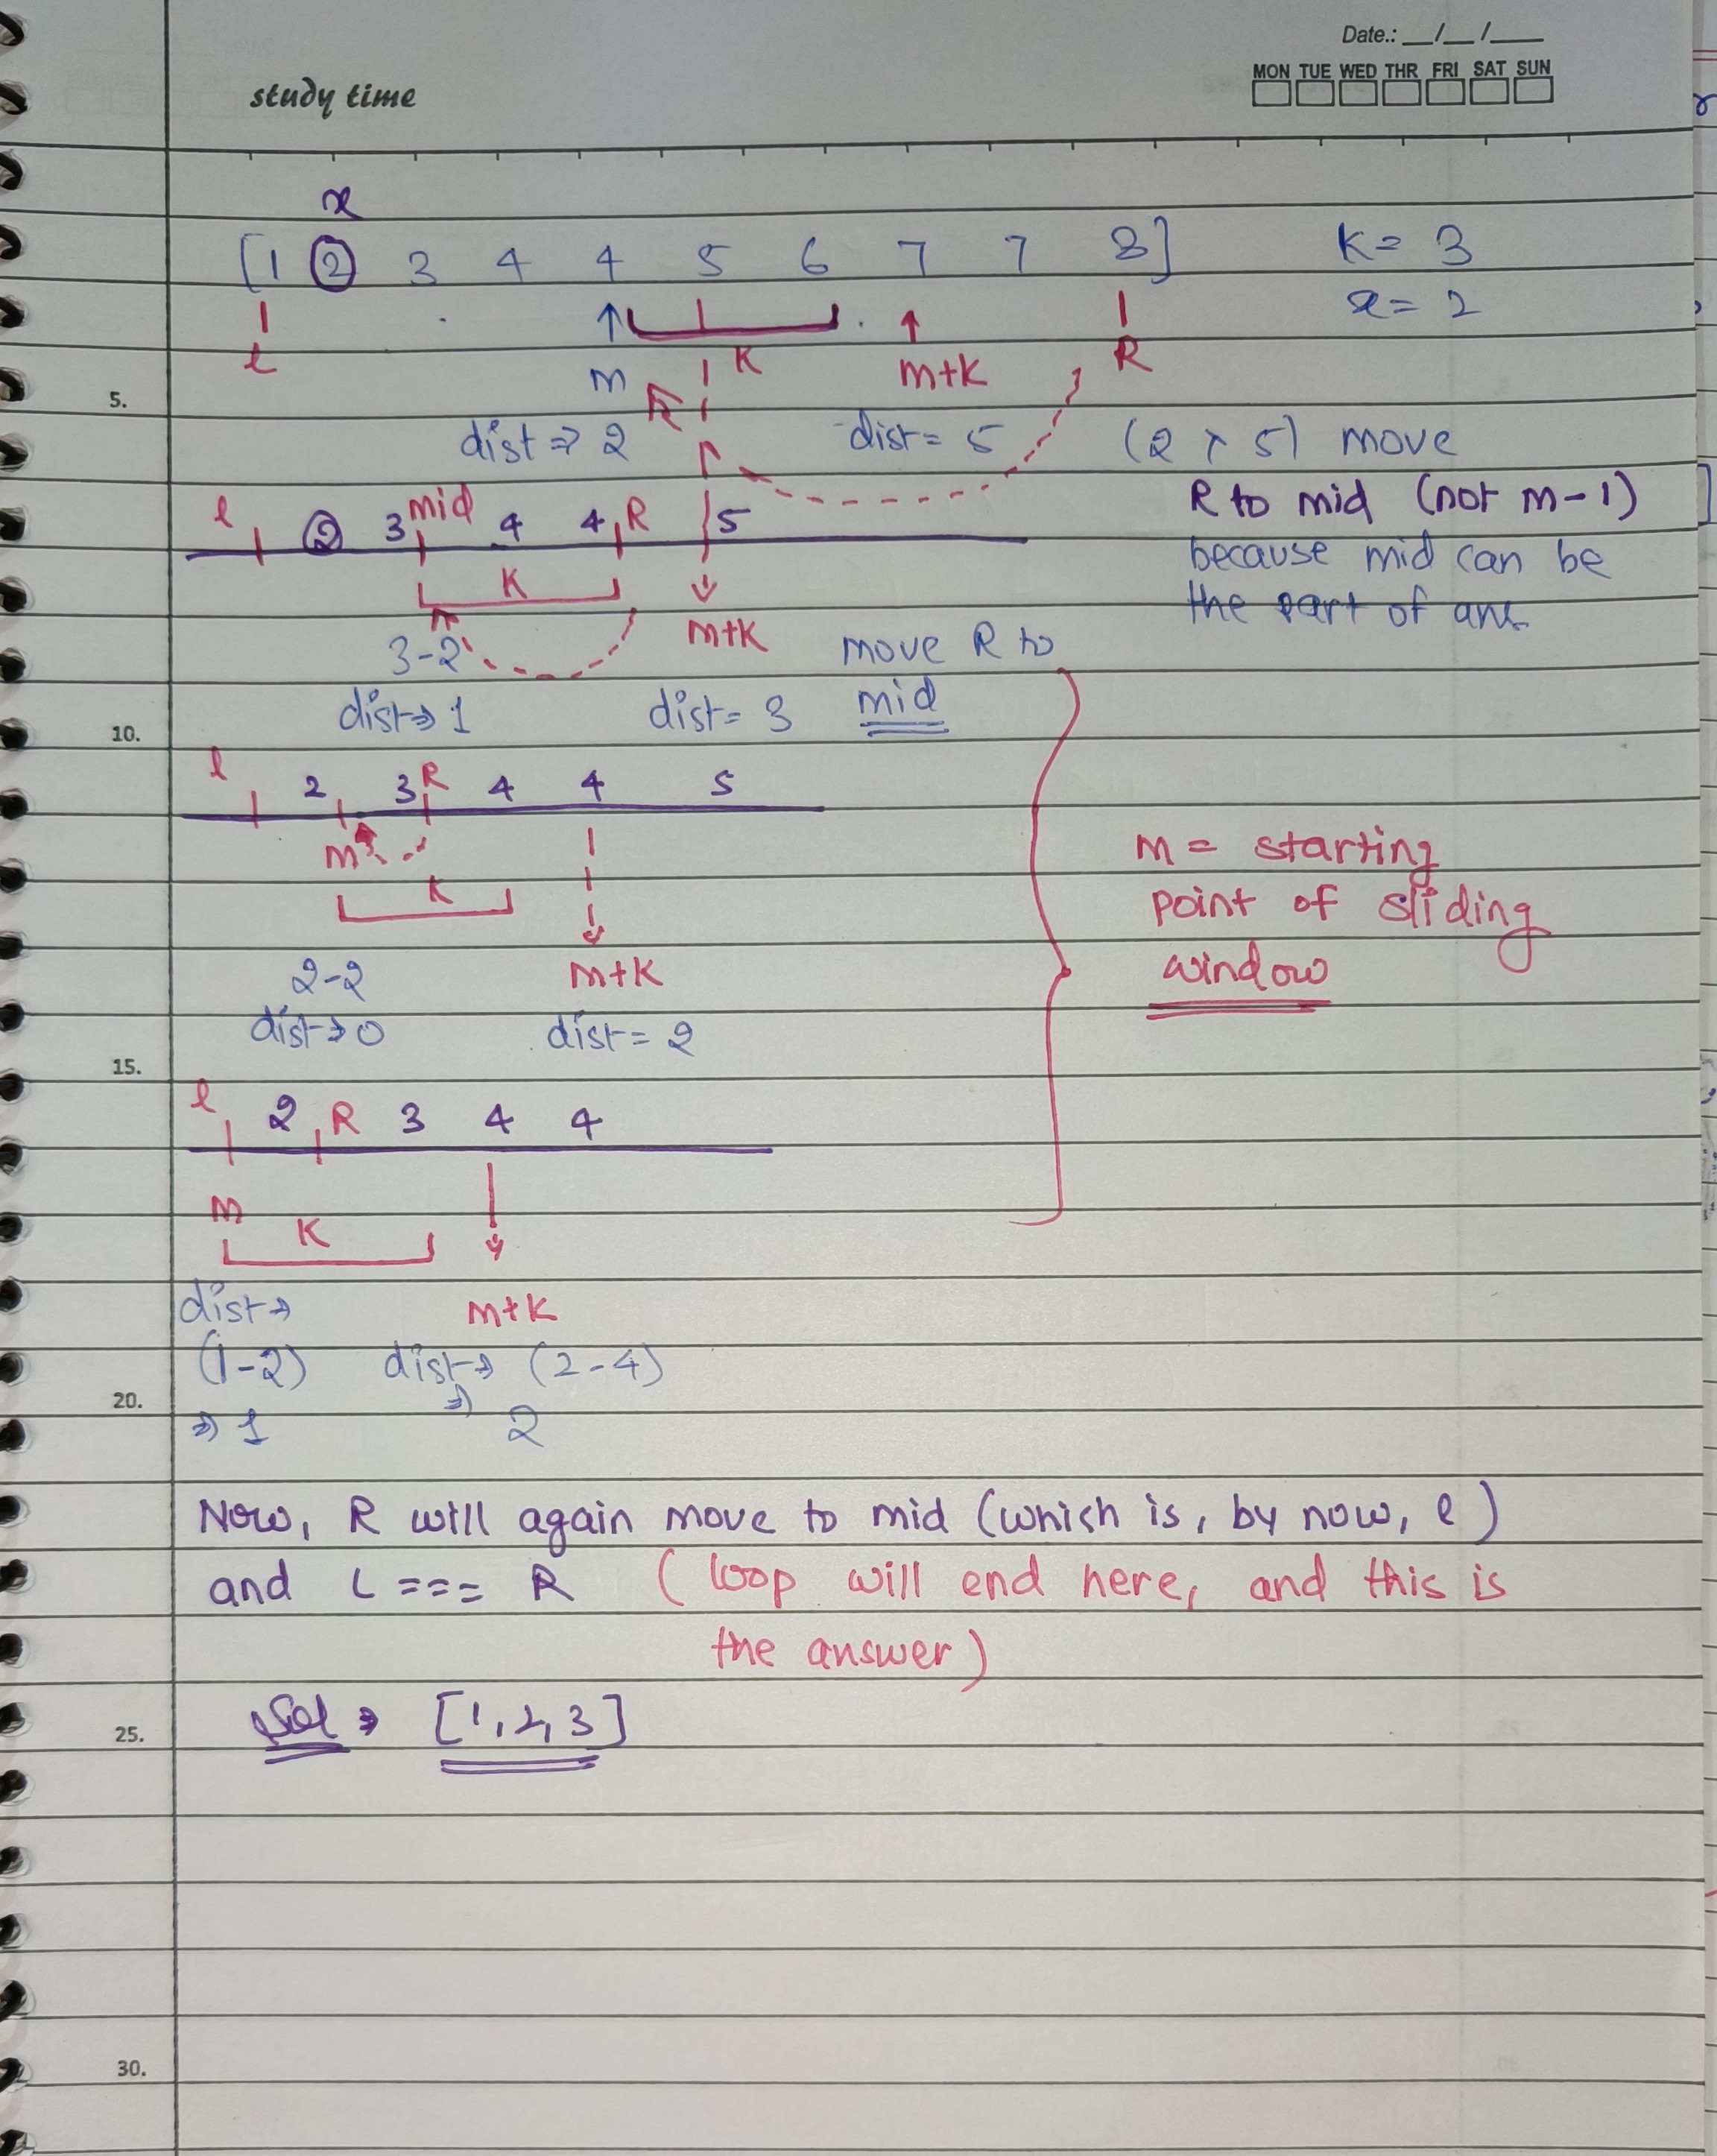 Date.: __/__/__
MON TUE WED THR FRI SAT SUN
study time
x
[1 2 3 4 4 5 6 7 7 8] K = 3
x = 2
l m K m+K R
5.
dist ⇒ 2 dist = 5 (2 > 5) move
R to mid (not m-1)
l 2 3 mid 4 4 R 5
because mid can be
the part of ans
K
m+K
3-2 move R to
dist ⇒ 1 dist = 3 mid
10.
l 2 3 R 4 4 5
m
K
m = starting
point of sliding
window
2-2 m+K
dist ⇒ 0 dist = 2
15.
l 2 R 3 4 4
m K
dist ⇒ m+K
(1-2) dist ⇒ (2-4)
20.
⇒ 1 ⇒ 2
Now, R will again move to mid (which is, by now, l)
and L === R (loop will end here, and this is
the answer)
25.
Sol ⇒ [1, 2, 3]
30.